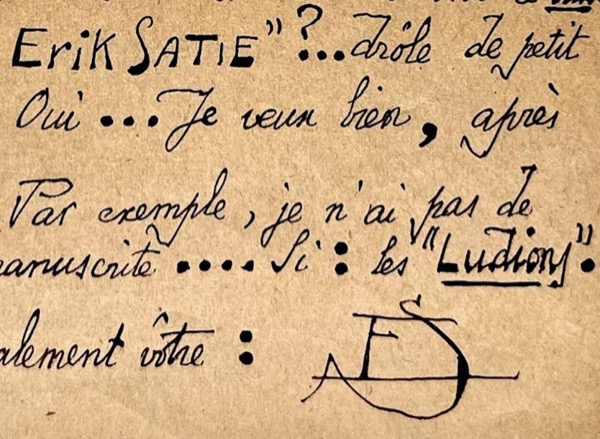 Erik SATIE" ?...drôle de petit
Oui ... Je veux bien, après
Par exemple, je n'ai pas de
manuscrite .... Si : les "Ludions".
alement vôtre :
ES